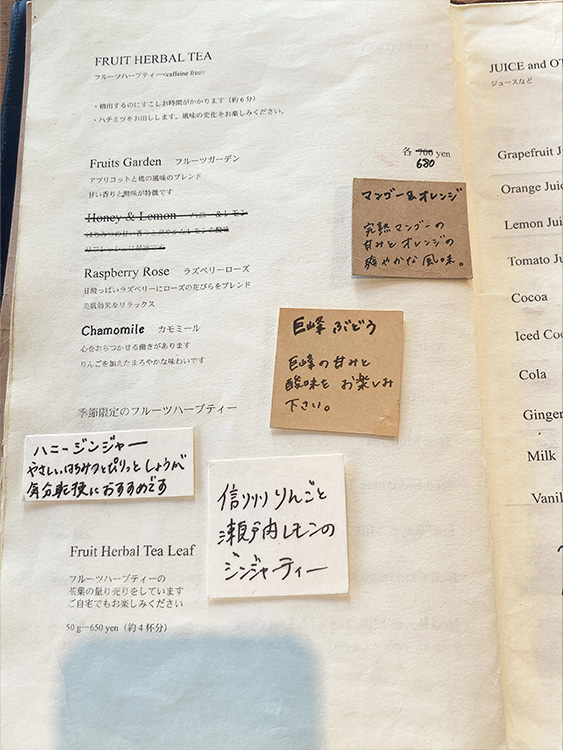 FRUIT HERBAL TEA
フルーツハーブティー<caffeine free>
・抽出するのにすこしお時間がかかります（約6分）
・ハチミツをお出しします。風味の変化をお楽しみください。
各 700 yen
680
Fruits Garden フルーツガーデン
アプリコットと桃の風味のブレンド
甘い香りと酸味が特徴です
Honey & Lemon ハニー＆レモン
マンゴー&オレンジ
完熟マンゴーの
甘みとオレンジの
爽やかな風味。
Raspberry Rose ラズベリーローズ
甘酸っぱいラズベリーにローズの花びらをブレンド
美肌効果＆リラックス
Chamomile カモミール
心をおちつかせる働きがあります
りんごを加えたまろやかな味わいです
巨峰 ぶどう
巨峰の甘みと
酸味を お楽しみ
下さい。
季節限定のフルーツハーブティー
ハニージンジャー
やさしいはちみつとぴりっとしょうが
気分転換におすすめです
信州りんごと
瀬戸内レモンの
ジンジャーティー
Fruit Herbal Tea Leaf
フルーツハーブティーの
茶葉の量り売りをしています
ご自宅でもお楽しみください
50 g—650 yen（約4杯分）
JUICE and OT
ジュースなど
Grapefruit J
Orange Juic
Lemon Jui
Tomato Ju
Cocoa
Iced Co
Cola
Ginger
Milk
Vanil